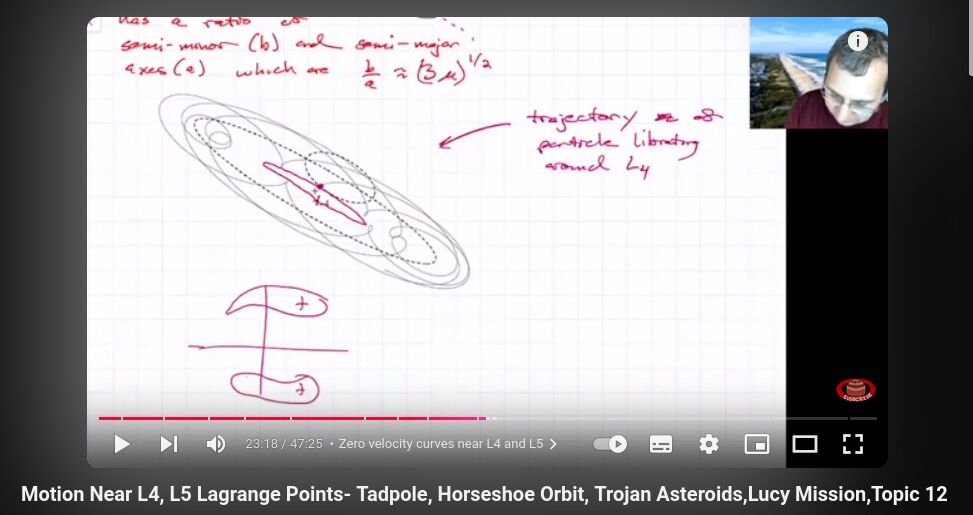 has a ratio of
semi-minor (b) and semi-major
axes (a) which are b/a ≈ (3μ)^1/2
trajectory of
particle librating
around L4
L4
+
+
SUBSCRIBE
23:18 / 47:25 • Zero velocity curves near L4 and L5
Motion Near L4, L5 Lagrange Points- Tadpole, Horseshoe Orbit, Trojan Asteroids,Lucy Mission,Topic 12